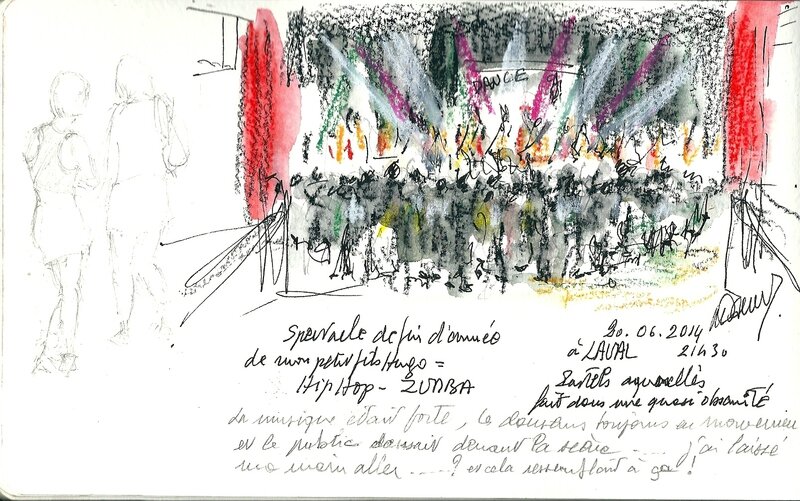 DANCE
Spectacle de fin d'année
de mon petit fils Hugo =
Hip Hop - ZUMBA
20.06.2014
à LAVAL 21h30
Pastels aquarellés
fait dans une quasi obscurité
La musique était forte, les danseurs toujours en mouvement
et le public dansait devant la scène ..... j'ai laissé
ma main aller ..... ? et cela ressemblait à ça !